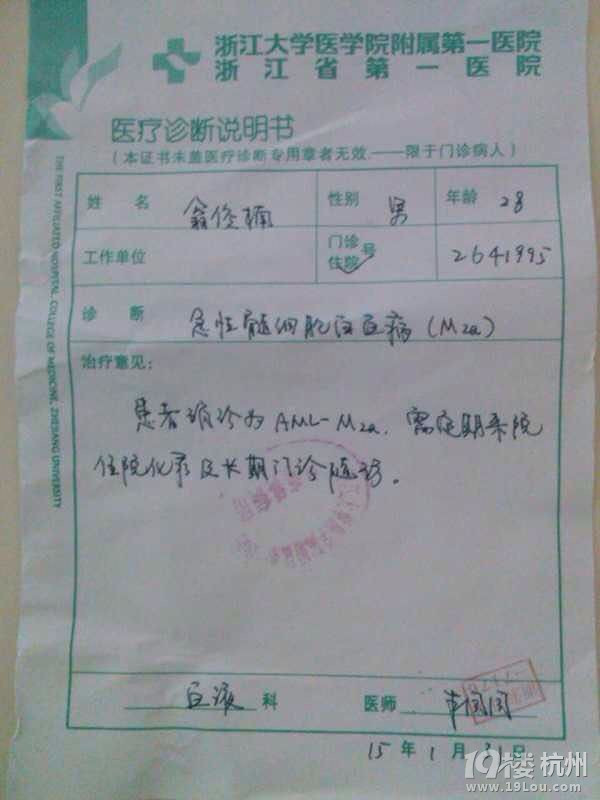 浙江大学医学院附属第一医院
浙江省第一医院
医疗诊断说明书
(本证书未盖医疗诊断专用章者无效——限于门诊病人)
姓名 翁俊楠 性别 男 年龄 28
工作单位 门诊住院号 2641995
诊断 急性髓细胞白血病(M2a)
治疗意见:
患者确诊为 AML-M2a. 需定期来院
住院化疗及长期门诊随访.
血液科 医师
15年1月31日
THE FIRST AFFILIATED HOSPITAL, COLLEGE OF MEDICINE, ZHEJIANG UNIVERSITY
19楼杭州
www.19Lou.com